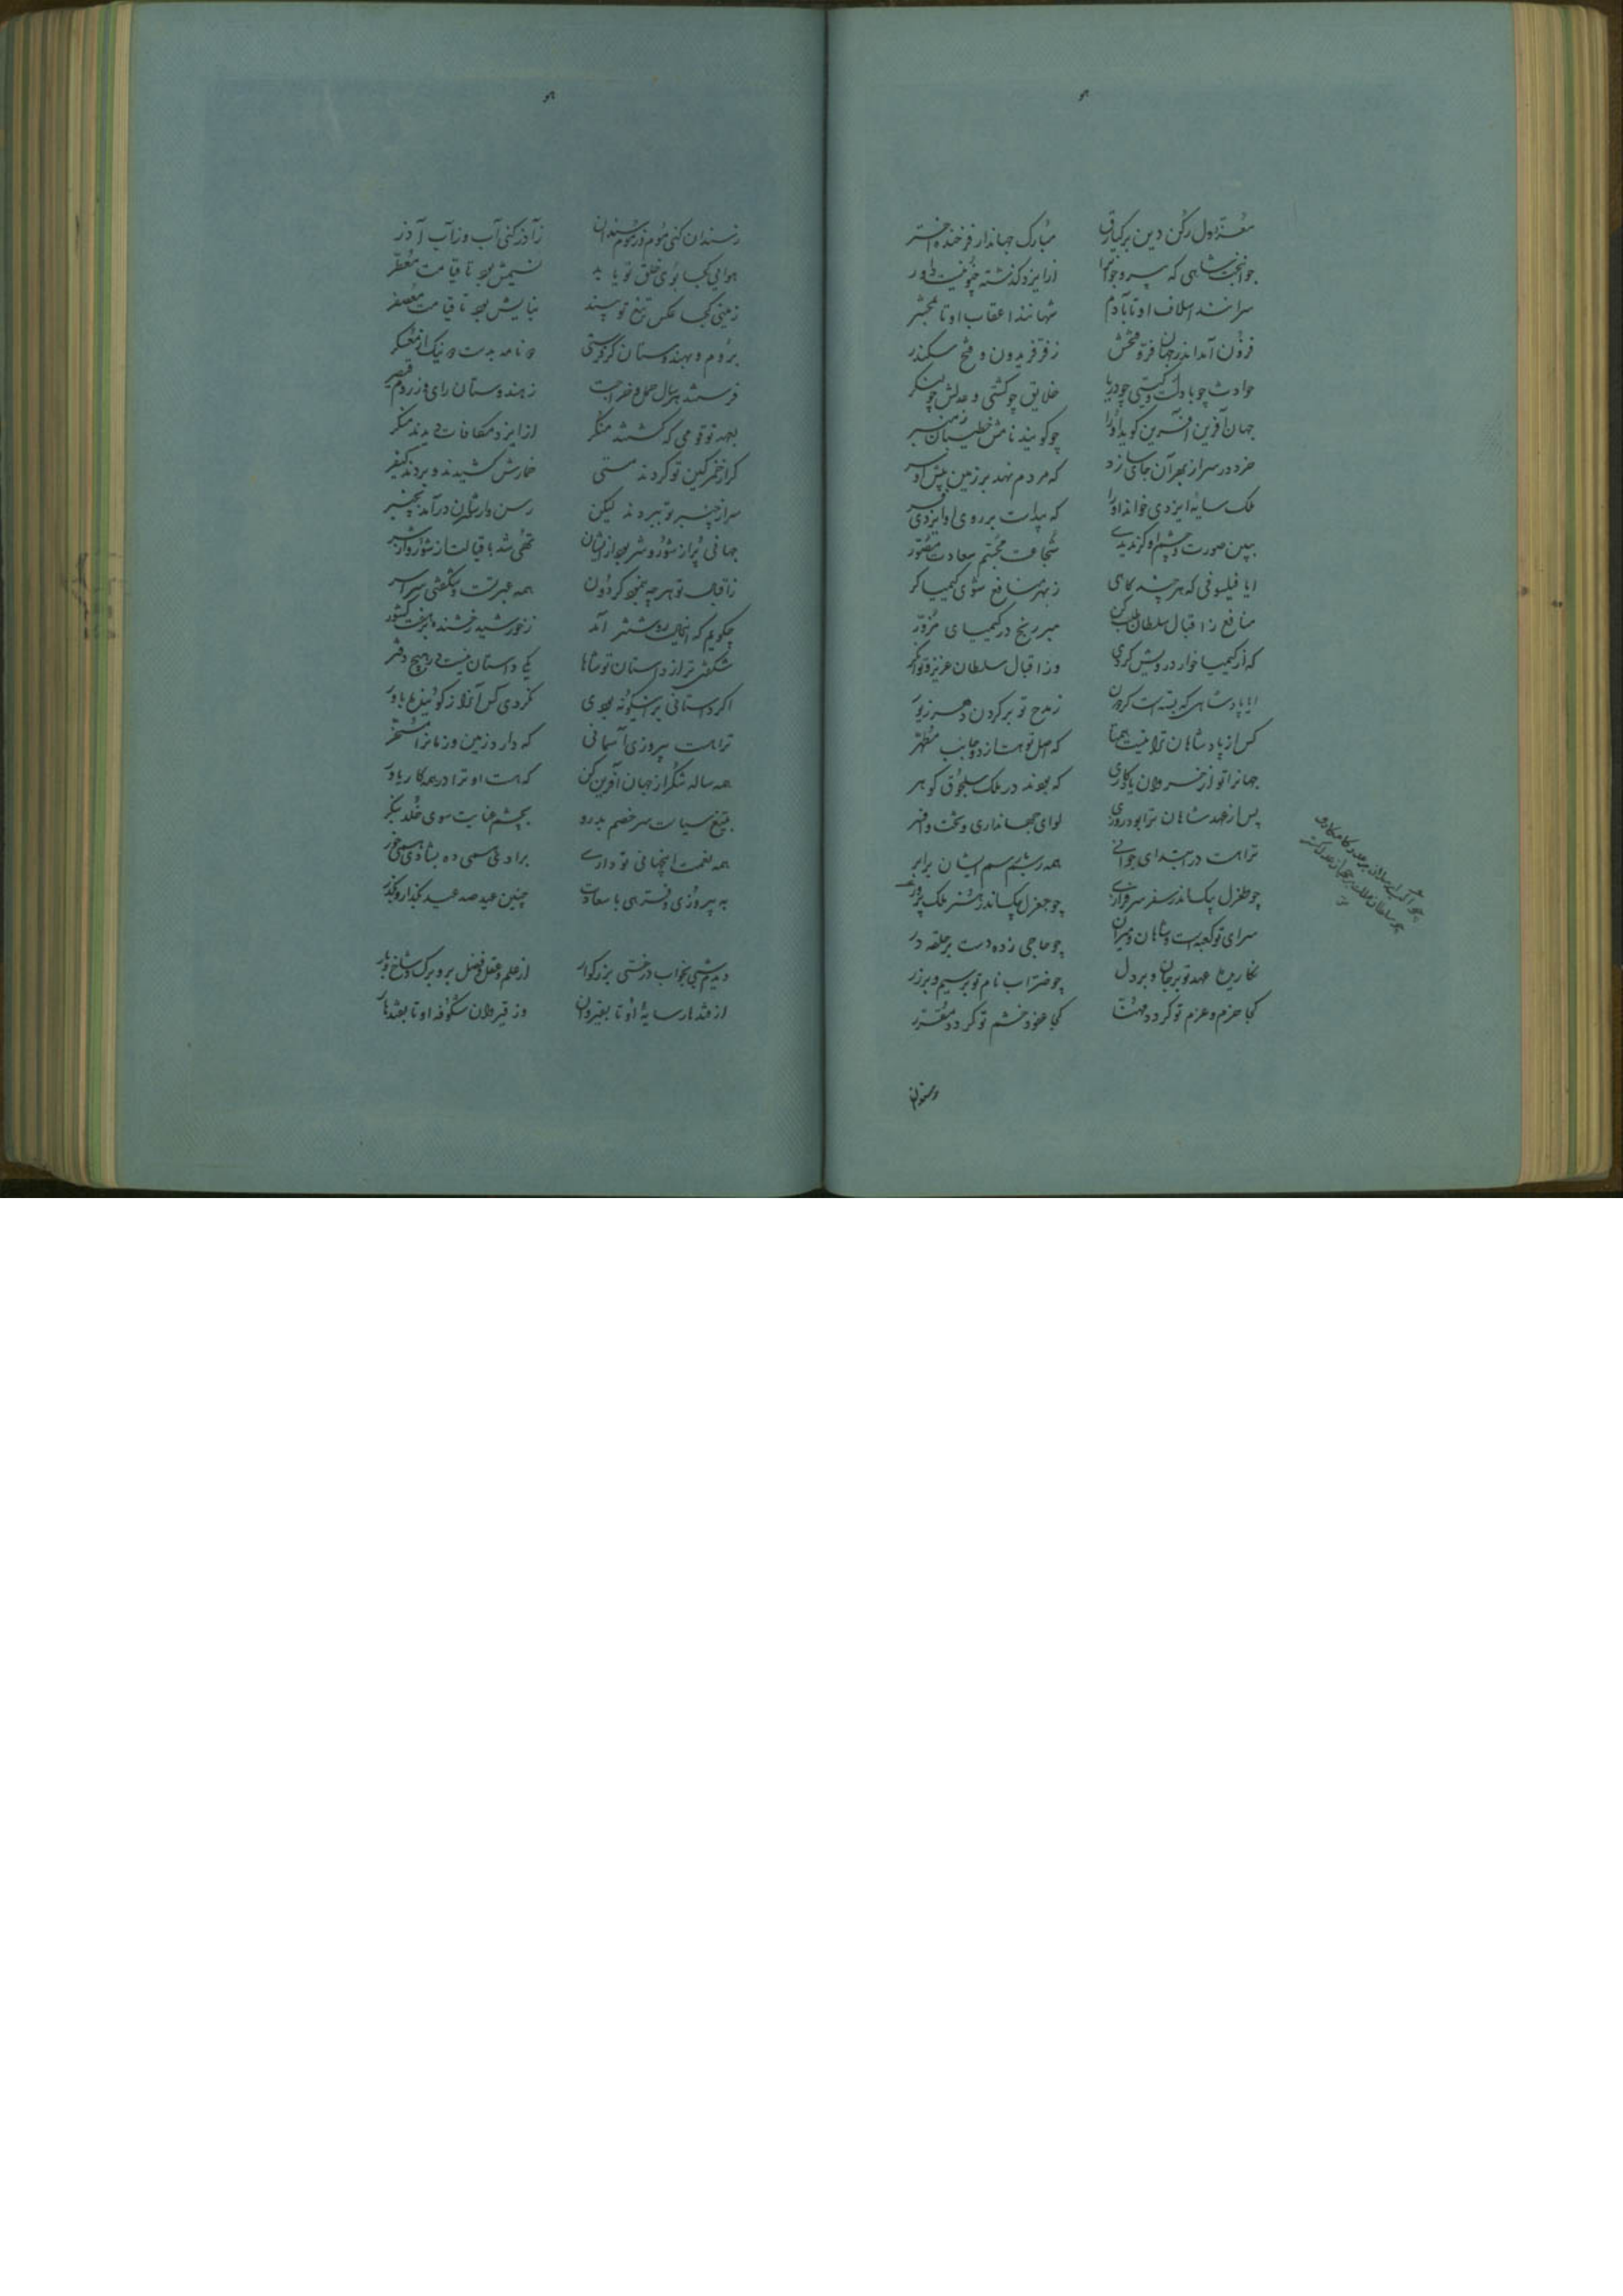 هو
معز دول رکن دین برکیارق    مبارک جهاندار فرخنده اختر
جوانبخت شاهی که پیر و جوانرا    از ایزد گذشته چنو نیست داور
سرانند اسلاف او تا بآدم    شهانند اعقاب او تا بمحشر
فزون آمد اندر جهان فر و فتحش    ز فر فریدون و فتح سکندر
حوادث چو باد است و گیتی چو دریا    خلایق چو کشتی و عدلش چو لنگر
جهان آفرین آفرین گوید او را    چو گویند نامش خطیبان ز منبر
خرد در سر از بهر آن جای زد    که مردم نهد بر زمین پیش او سر
ملک سایه ایزدی خواند او را    که پیداست بر روی او ایزدی فر
ببین صورت و چشم او گر ندیدی    شجاعت مجسم سعادت مصور
ایا فیلسوفی که هر چند گاهی    ز بهر منافع شوی کیمیاگر
منافع ز اقبال سلطان طلب کن    مبر رنج در کیمیای مزور
که از کیمیا خوار و درویش گردی    وز اقبال سلطان عزیز و توانگر
ایا پادشاهی که بسته است گردون    ز مدح تو بر گردن دهر زیور
کس از پادشاهان ترا نیست همتا    که اصل تو هست از دو جانب مطهر
جهانرا تو از خسروان یادگاری    که بودند در ملک سلجوق گوهر
پس از عهد شاهان ترا بود روزی    لوای جهانداری و تخت و افسر
ترا هست در ابتدای جوانی    همه رسم رسم ایشان برابر
چو طغرل بیک اندر سفر سرفرازی    چو جغرل بیک اندر هنر ملک پرور
سرای تو کعبه است و شاهان و میران    چو حاجی زده دست بر حلقه در
نگارین عهد تو بر جان و بر دل    چو ضراب نام تو بر سیم و بر زر
کجا حزم و عزم تو گردد مهنا    کجا عفو و خشم تو گردد مقرر
هو
ز سندان کنی موم وز موم سندان    ز آذر کنی آب وز آب آذر
هوایی کجا بوی خلق تو یابد    نسیمش بود تا قیامت معطر
زمینی کجا عکس تیغ تو بیند    نباتش بود تا قیامت معصفر
بروم و بهندوستان گر فرستی    دو نامه بدست دو پیک از معسکر
فرستند هر سال حمل و خراجت    ز هندوستان رای و از روم قیصر
بعهد تو قومی که گشتند منکر    از ایزد مکافات دیدند منکر
گر از خمر کین تو کردند مستی    خمارش کشیدند و بردند کیفر
سر از چنبر تو ببردند لیکن    رسن وار شان در آمد بچنبر
جهانی پر از شور و شر بود از ایشان    تهی شد باقبالت از شور و از شر
ز اقبال تو هر چه بنمود گردون    همه عبرتست و شگفتی سراسر
چگویم که اینحال روشنتر آمد    ز خورشید رخشنده بر هفت کشور
شگفتی تر از داستان تو شاها    یکی داستان نیست در هیچ دفتر
اگر داستانی برینگونه بودی    نکردی کس آنرا ز گوینده باور
ترا هست پیروزی آسمانی    که دارد زمین و زمانرا مسخر
همه ساله شکر از جهان آفرین کن    که هست او ترا در همه کار یاور
بتیغ سیاست سر خصم بدرو    بچشم عنایت سوی خلد بنگر
همه نعمت اینجهانی تو داری    براد دلی همی ده بشادی همی خور
به پیروزی و فرهی با سعادت    چنین عید صد عید بگذار و بگذر
دیدم شبی بخواب درختی بزرگوار    از علم و عقل و فضل بر و برگ و شاخ و بار
از قندهار سایه او تا بقیروان    وز قیروان شکوفه او تا بقندهار